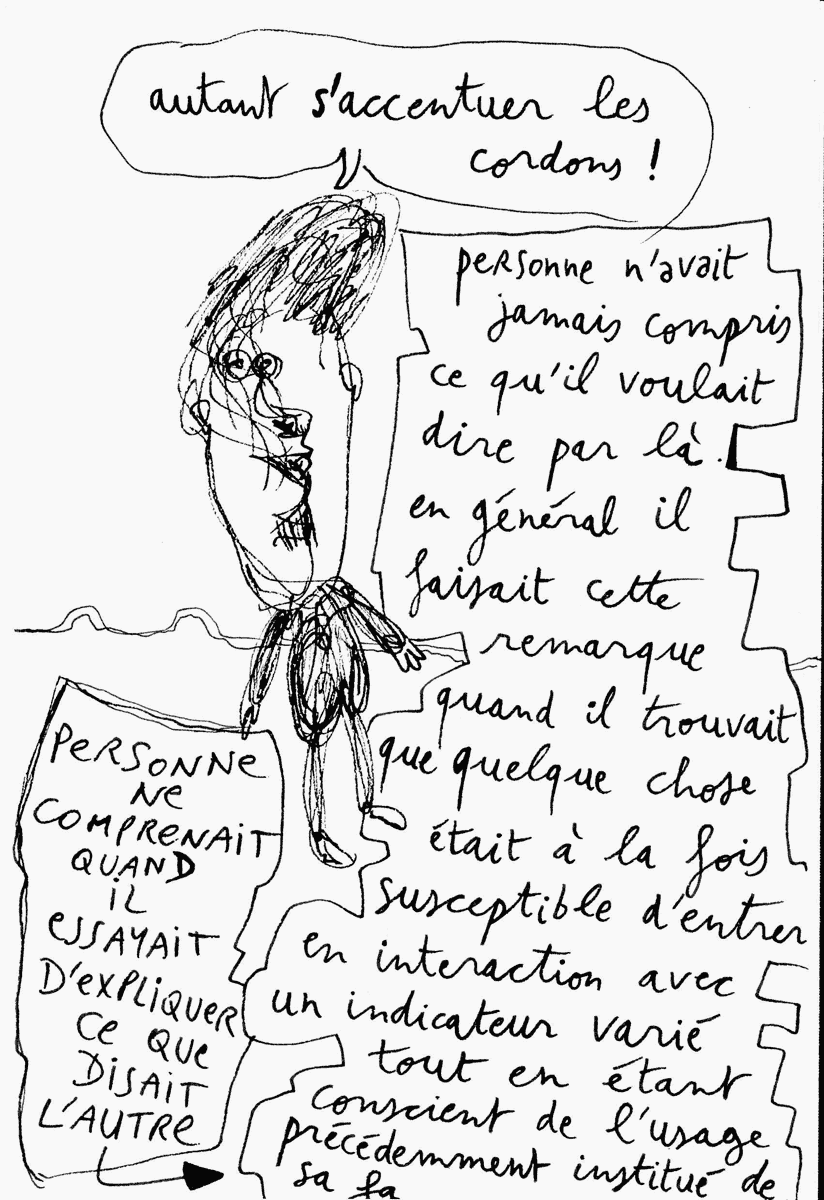 autant s'accentuer les
cordons !
personne n'avait
jamais compris
ce qu'il voulait
dire par là.
en général il
faisait cette
remarque
quand il trouvait
que quelque chose
était à la fois
susceptible d'entrer
en interaction avec
un indicateur varié
tout en étant
conscient de l'usage
précédemment institué de
sa
PERSONNE
NE
COMPRENAIT
QUAND
IL
ESSAYAIT
D'EXPLIQUER
CE QUE
DISAIT
L'AUTRE